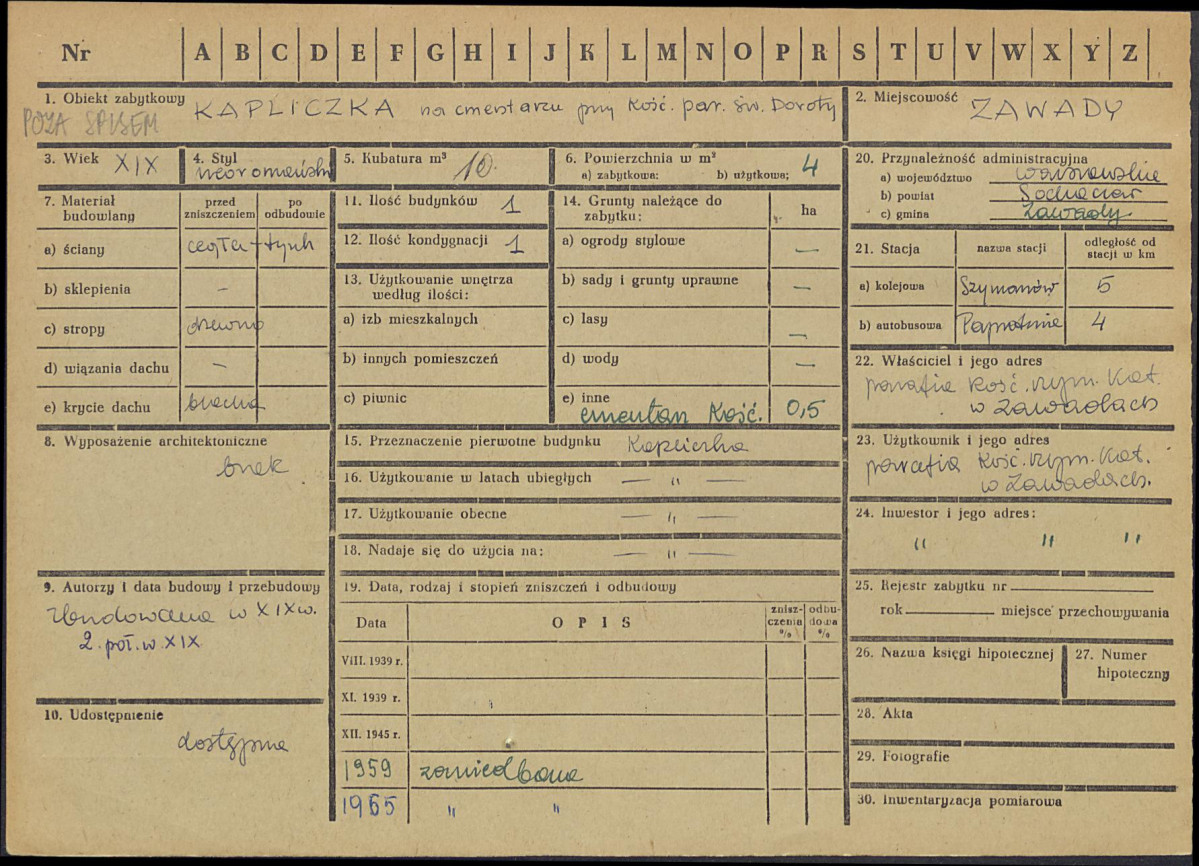 Nr A B C D E F G H I J K L M N O P R S T U V W X Y Z
1. Obiekt zabytkowy KAPLICZKA na cmentarzu przy kość. par. św. Doroty
POZA SPISEM
2. Miejscowość ZAWADY
3. Wiek XIX
4. Styl
neoromański
5. Kubatura m³ 10.
6. Powierzchnia w m²
a) zabytkowa: b) użytkowa; 4
7. Materiał budowlany
przed zniszczeniem
po odbudowie
a) ściany cegła + tynk
b) sklepienia –
c) stropy drewno
d) wiązania dachu –
e) krycie dachu blacha
8. Wyposażenie architektoniczne
brak
9. Autorzy i data budowy i przebudowy
Zbudowana w XIX w.
2. poł. w. XIX
10. Udostępnienie
dostępna
11. Ilość budynków 1
12. Ilość kondygnacji 1
13. Użytkowanie wnętrza
według ilości:
a) izb mieszkalnych
b) innych pomieszczeń
c) piwnic
14. Grunty należące do
zabytku:
ha
a) ogrody stylowe –
b) sady i grunty uprawne –
c) lasy –
d) wody –
e) inne
cmentarz kość. 0,5
15. Przeznaczenie pierwotne budynku Kapliczka
16. Użytkowanie w latach ubiegłych — " —
17. Użytkowanie obecne — " —
18. Nadaje się do użycia na: — " —
19. Data, rodzaj i stopień zniszczeń i odbudowy
Data OPIS
znisz-
czenia
%
odbu-
dowa
%
VIII. 1939 r.
XI. 1939 r.
XII. 1945 r.
1959 zaniedbana
1965 " "
20. Przynależność administracyjna
a) województwo warszawskie
b) powiat Sochaczew
c) gmina Zawady
21. Stacja
nazwa stacji
odległość od
stacji w km
a) kolejowa Szymanów 5
b) autobusowa Paprotnia 4
22. Właściciel i jego adres
parafia kość. rzym. kat.
w Zawadach
23. Użytkownik i jego adres
parafia kość. rzym. kat.
w Zawadach.
24. Inwestor i jego adres:
" " "
25. Rejestr zabytku nr
rok miejsce przechowywania
26. Nazwa księgi hipotecznej
27. Numer
hipoteczny
28. Akta
29. Fotografie
30. Inwentaryzacja pomiarowa